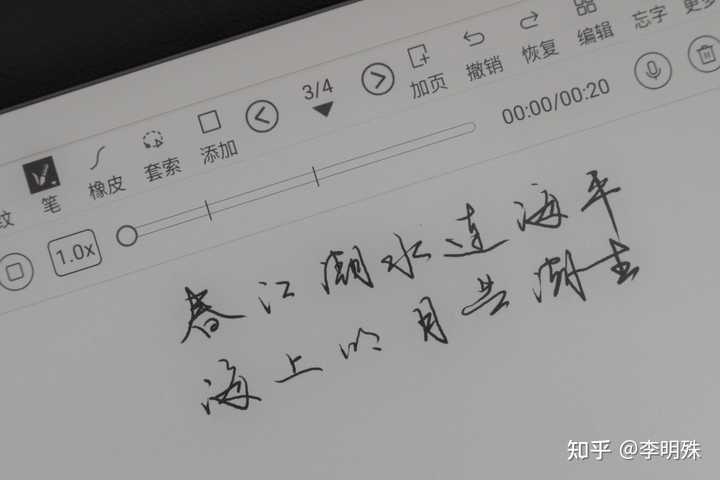 更多
忘字
编辑
恢复
撤销
加页
3/4
添加
套索
橡皮
笔
纹
00:00/00:20
1.0x
春江潮水连海平
海上明月共潮生
知乎 @李明殊